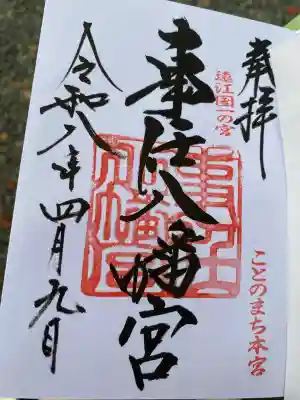 奉拝
遠江国一の宮
ことのまち本宮
事任八幡宮
令和八年四月九日